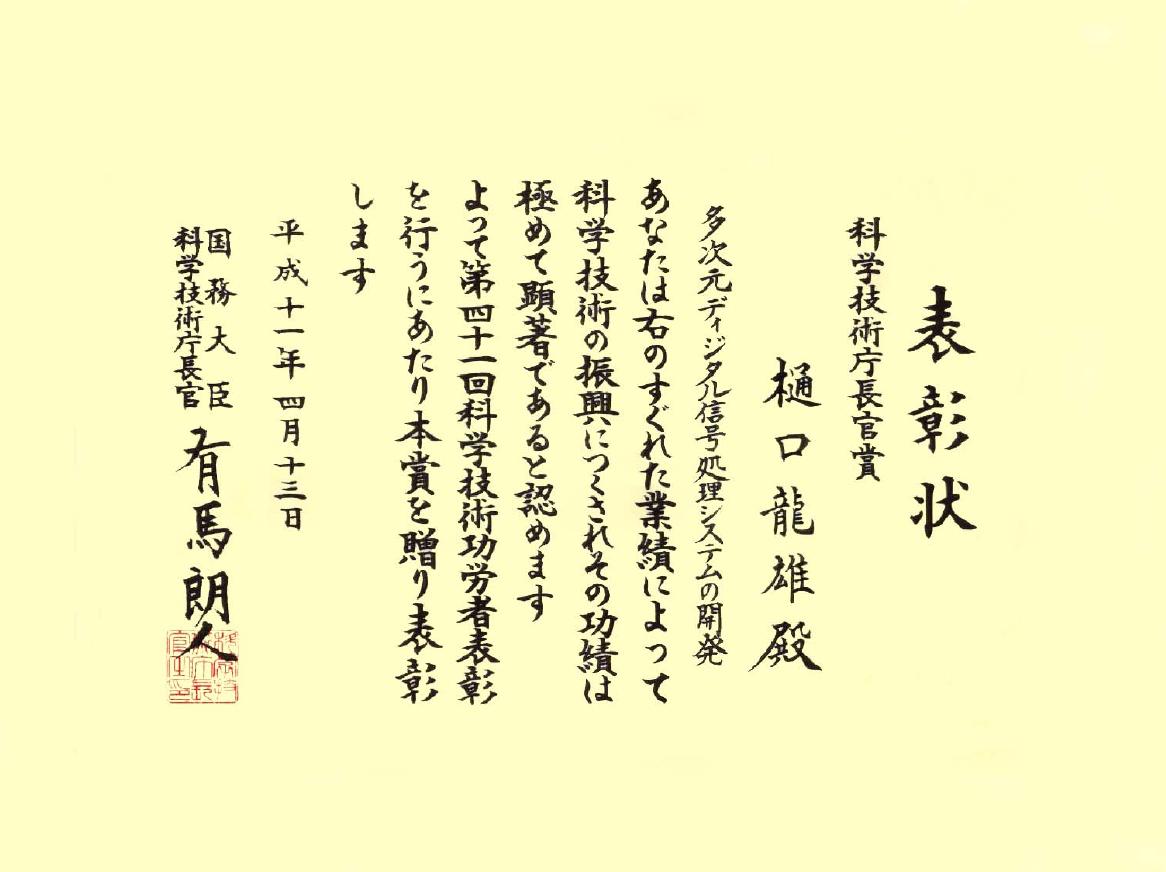 表彰状
科学技術庁長官賞
樋口龍雄殿
多次元ディジタル信号処理システムの開発
あなたは右のすぐれた業績によって
科学技術の振興につくされその功績は
極めて顕著であると認めます
よって第四十一回科学技術功労者表彰
を行うにあたり本賞を贈り表彰
します
平成十一年四月十三日
国務大臣
科学技術庁長官
有馬朗人